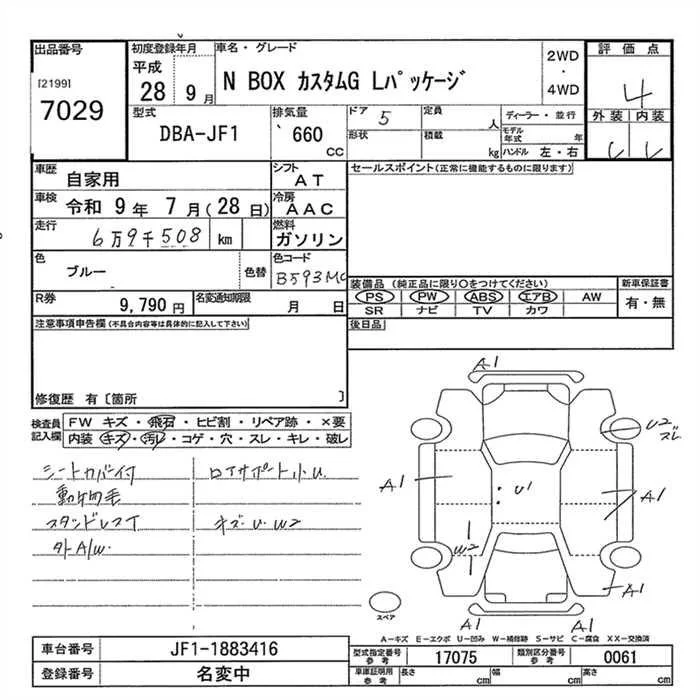 出品番号
[2199]
7029
初度登録年月
平成
28 9月
車名・グレード
N BOX カスタムG Lパッケージ
2WD
・
4WD
評価点
4
外装 内装
型式
DBA-JF1
排気量
660
cc
ドア
5
定員
人
形状
積載
kg
ディーラー・並行
モデル年式
年
ハンドル 左・右
車歴
自家用
シフト
AT
車検
令和 9年 7月(28日)
冷房
AAC
走行
6万9千508 km
燃料
ガソリン
色
ブルー
色替
色コード
B593M
R券
9,790円
名変通知期限
月 日
セールスポイント(正常に機能するものに限ります)
装備品(純正品に限り○をつけてください)
PS PW ABS エアB AW
SR ナビ TV カワ
新車保証書
有・無
後日品
注意事項申告欄(不具合内容等は具体的に記入して下さい)
修復歴 有〔箇所 〕
検査員記入欄
FW キズ・飛石・ヒビ割・リペア跡・×要
内装 キズ・汚レ・コゲ・穴・スレ・キレ・破レ
シートカバー付
動物毛
スタンドレスT
外A/W.
ロアサポート小U.
キズ・U・W2
A1
U2
スレ
A1
U1
A1
W2
A1
A1
A1
スペア
A-キズ E-エクボ U-凹み W-補修跡 S-サビ C-腐食 XX-交換済
車台番号
JF1-1883416
登録番号
名変中
型式指定番号
参考
17075
類別区分番号
参考
0061
車庫証明用
参考
長さ
cm
幅
cm
高さ
cm